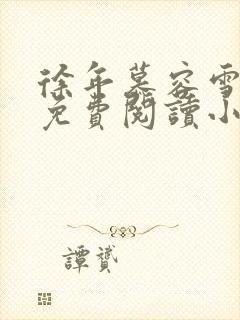 徐年慕容雪
免費閱讀小
譚贇